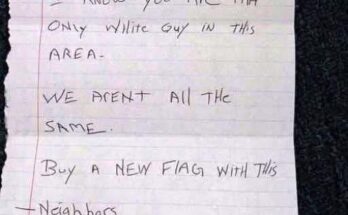 I KNOW YOU ARE THE
ONLY WhitE Guy IN THIS
AREA-
WE ArENT All THE
SAME.
Buy A NEW FlAG WITH THIS
-Neighbors